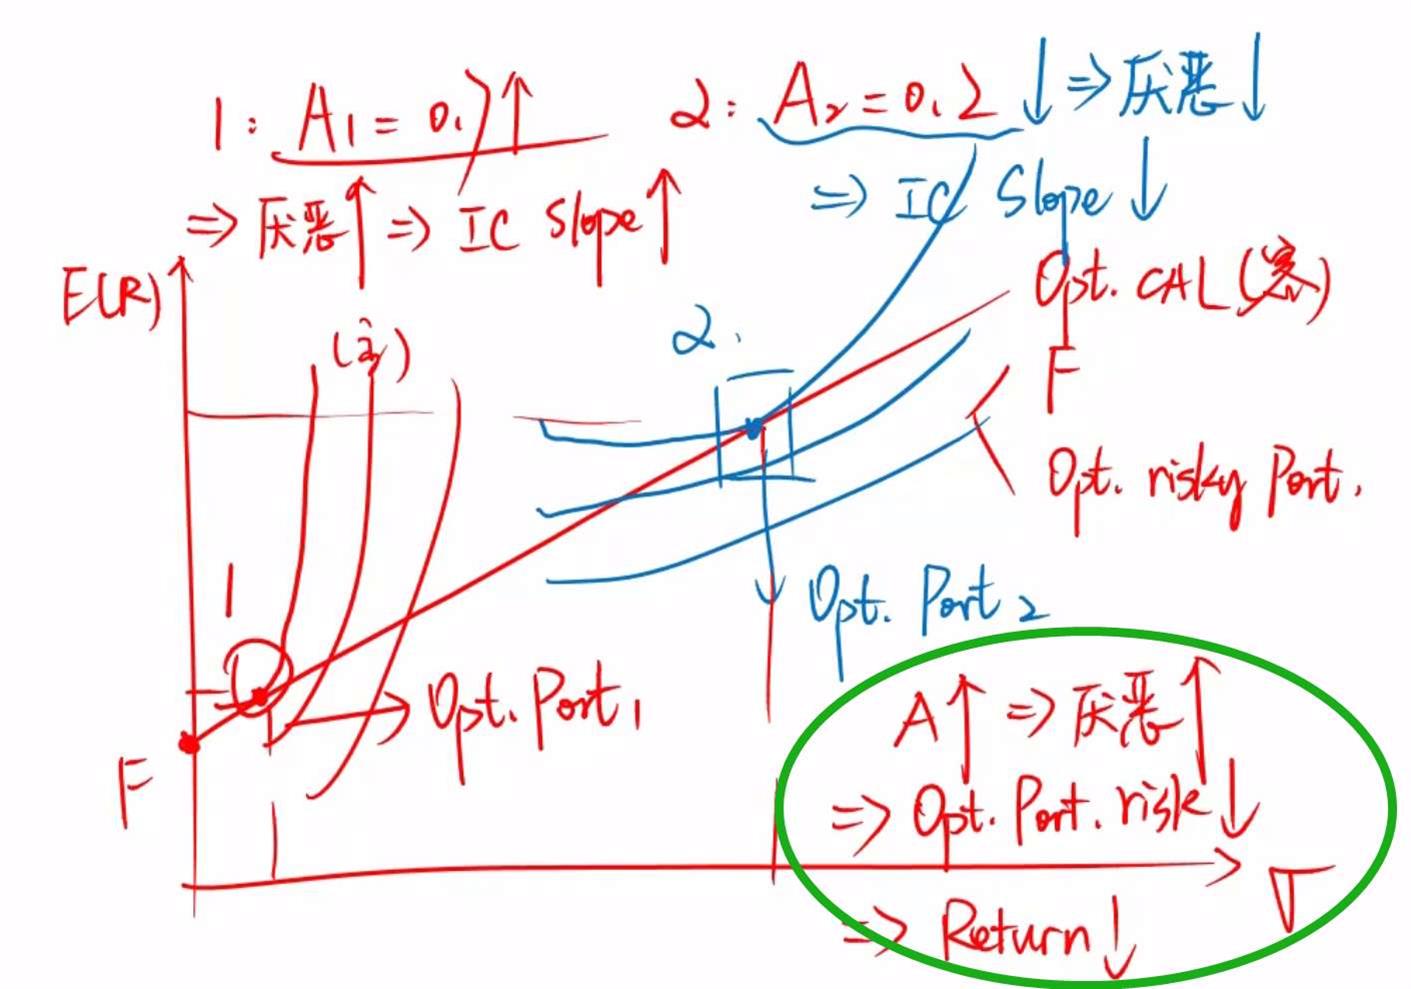 1: A₁ = 0.7↑
2: A₂ = 0.2↓ ⇒ 厌恶↓
⇒ 厌恶↑ ⇒ IC Slope↑
⇒ IC Slope↓
E(R)
(主)
2.
Opt. CAL (客)
F
Opt. risky Port.
1
Opt. Port₁
Opt. Port₂
F
A↑ ⇒ 厌恶↑
⇒ Opt. Port. risk↓
⇒ Return↓
σ